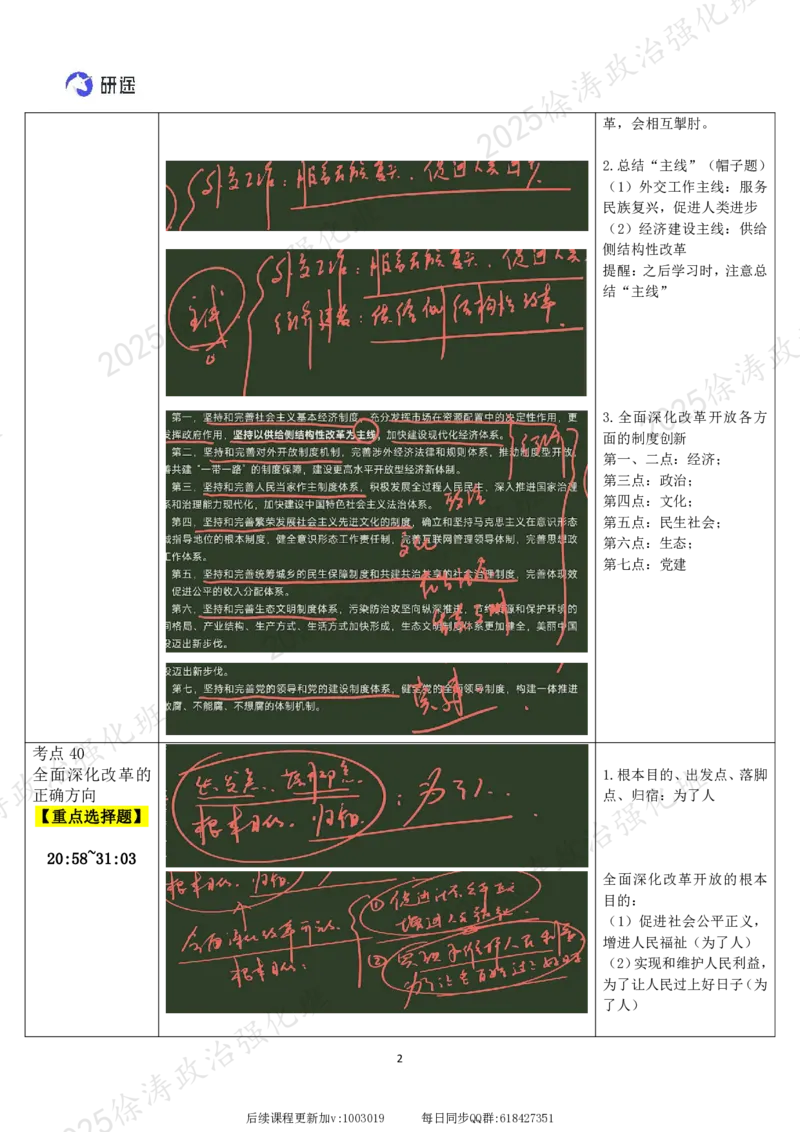 研途
革，会相互掣肘。
2.总结“主线”（帽子题）
（1）外交工作主线：服务
民族复兴，促进人类进步
（2）经济建设主线：供给
侧结构性改革
提醒：之后学习时，注意总
结“主线”
外交工作：服务民族复兴、促进人类进步
外交工作：服务民族复兴、促进人类
主线
经济建设：供给侧结构性改革
第一，坚持和完善社会主义基本经济制度，充分发挥市场在资源配置中的决定性作用，更
发挥政府作用，坚持以供给侧结构性改革为主线，加快建设现代化经济体系。
第二，坚持和完善对外开放制度机制，完善涉外经济法律和规则体系，推动制度型开放，
善共建“一带一路”的制度保障，建设更高水平开放型经济新体制。
经济
第三，坚持和完善人民当家作主制度体系，积极发展全过程人民民主，深入推进国家治理
系和治理能力现代化，加快建设中国特色社会主义法治体系。
政治
第四，坚持和完善繁荣发展社会主义先进文化的制度，确立和坚持马克思主义在意识形态
域指导地位的根本制度，健全意识形态工作责任制，完善互联网管理领导体制，完善思想政
工作体系。
文化
第五，坚持和完善统筹城乡的民生保障制度和共建共治共享的社会治理制度，完善体现效
促进公平的收入分配体系。
第六，坚持和完善生态文明制度体系，污染防治攻坚向纵深推进，节约资源和保护环境的
间格局、产业结构、生产方式、生活方式加快形成，生态文明制度体系更加健全，美丽中国
设迈出新步伐。
设迈出新步伐。
第七，坚持和完善党的领导和党的建设制度体系，健全党的全面领导制度，构建一体推进
敢腐、不能腐、不想腐的体制机制。
党建
3.全面深化改革开放各方
面的制度创新
第一、二点：经济；
第三点：政治；
第四点：文化；
第五点：民生社会；
第六点：生态；
第七点：党建
考点 40
全面深化改革的
正确方向
【重点选择题】
20:58~31:03
出发点、落脚点
根本目的、归宿：为了人..
1.根本目的、出发点、落脚
点、归宿：为了人
根本目的、归宿
全面深化改革开放
根本目的：
①促进社会公平正义
增进人民福祉
②实现和维护人民利益
为了让老百姓过上好日子
全面深化改革开放的根本
目的：
（1）促进社会公平正义，
增进人民福祉（为了人）
（2）实现和维护人民利益，
为了让人民过上好日子（为
了人）
2
后续课程更新加v:1003019 每日同步QQ群:618427351
2025徐涛政治强化班